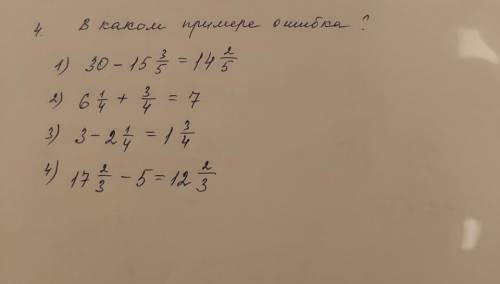 4. В каком примере ошибка?
1) 30 - 15 3/5 = 14 2/5
2) 6 1/4 + 3/4 = 7
3) 3 - 2 1/4 = 1 3/4
4) 17 2/3 - 5 = 12 2/3